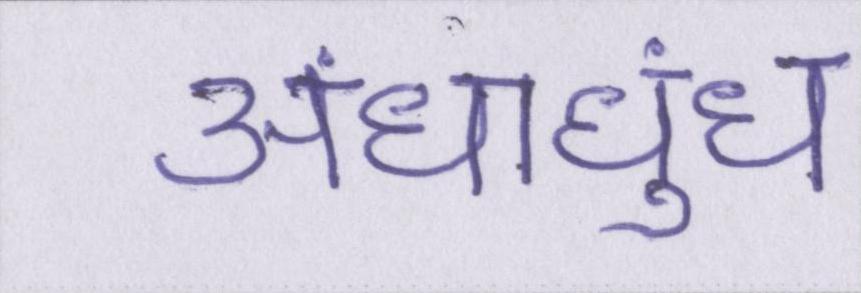 अंधाधुंध